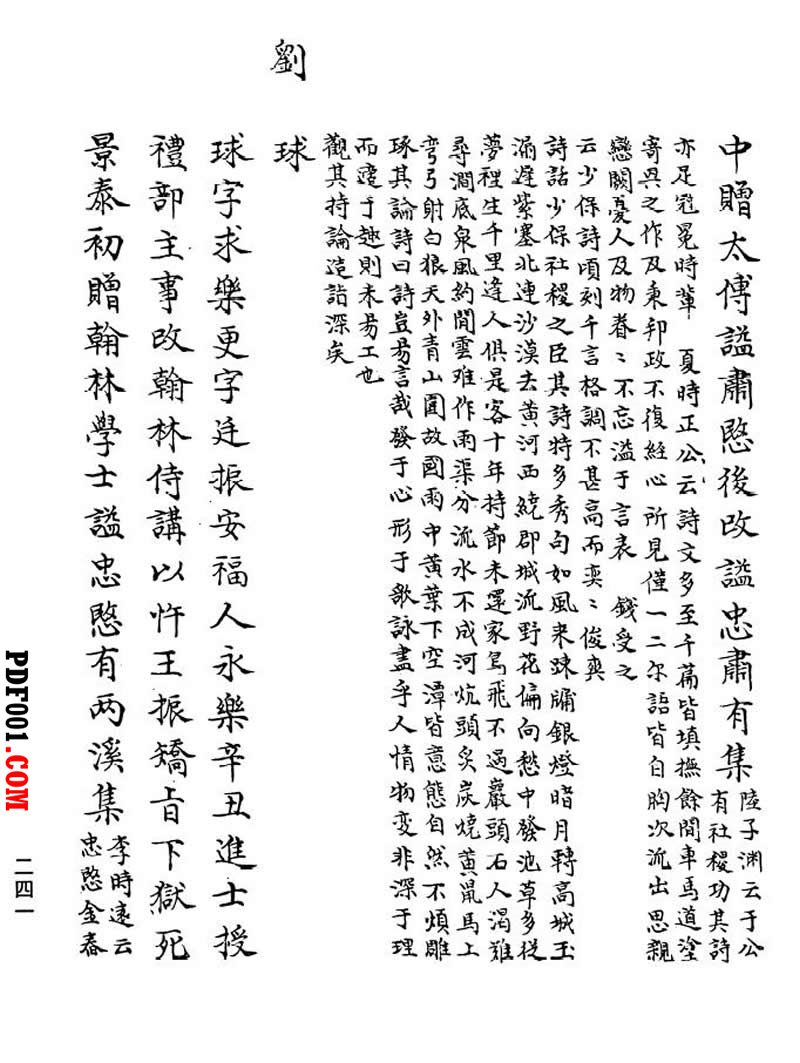 中贈太傅謚肅愍後改謚忠肅有集
陸子淵云于公
有社稷功其詩
亦足冠冕時輩 夏時正公云詩文多至千篇皆填撫餘閒車馬道塗
寄興之作及秉邦政不復經心所見僅一二尔語皆自胸次流出思親
戀闕憂人及物眷〻不忘溢于言表 錢受之
云少保詩頃刻千言格調不甚高而奕〻俊爽
詩話少保社稷之臣其詩特多秀句如風来踈牖銀燈暗月轉高城玉
漏遲紫塞北連沙漠去黄河西繞郡城流野花偏向愁中發池草多従
夢裡生千里逢人俱是客十年持節未還家鳥飛不過巖頭石人渴難
尋澗底泉風約閒雲难作雨渠分流水不成河炕頭炙炭燒黄鼠馬上
弯弓射白狼天外青山圍故國雨中黄葉下空潭皆意態自然不煩雕
琢其論詩曰詩豈易言哉發于心形于歌詠盡乎人情物变非深于理
而適于趣則未易工也
觀其持論造詣深矣
劉球
球字求樂更字廷振安福人永樂辛丑進士授
禮部主事改翰林侍講以忤王振矯旨下獄死
景泰初贈翰林學士謚忠愍有两溪集
李時遠云
忠愍金春
二四一
PDF001.COM